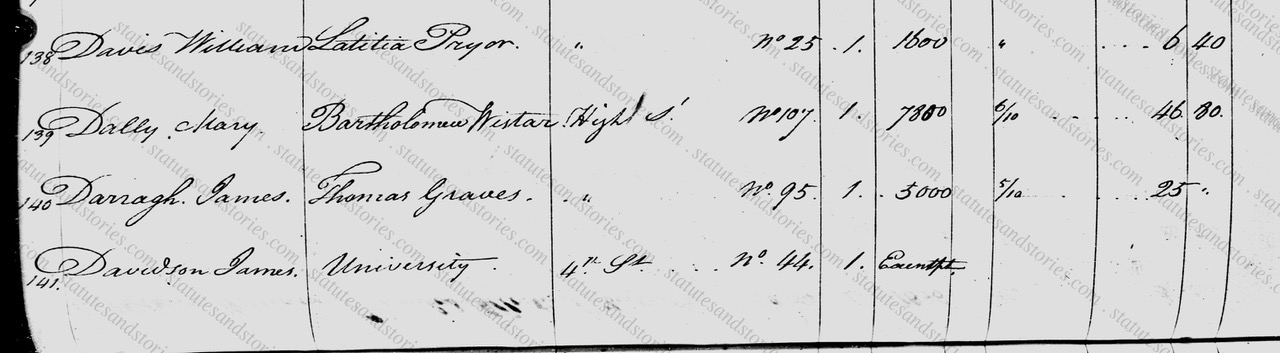 138 Davis William Latitia Pryor. " No 25 . 1. 1600 " . . . . 6 40
139 Dally Mary. Bartholomew Wistar High St No 107. 1. 7800 6/10 . . . . . 46. 80.
140 Darragh. James. Thomas Graves. . " No. 95. 1. . . 5000 5/10 . . . . . 25 "
141. Davidson James. University. 4th St. . . No. 44. 1. Exempt.
statutesandstories.com . statutesandstories.com . statutesandstories.com